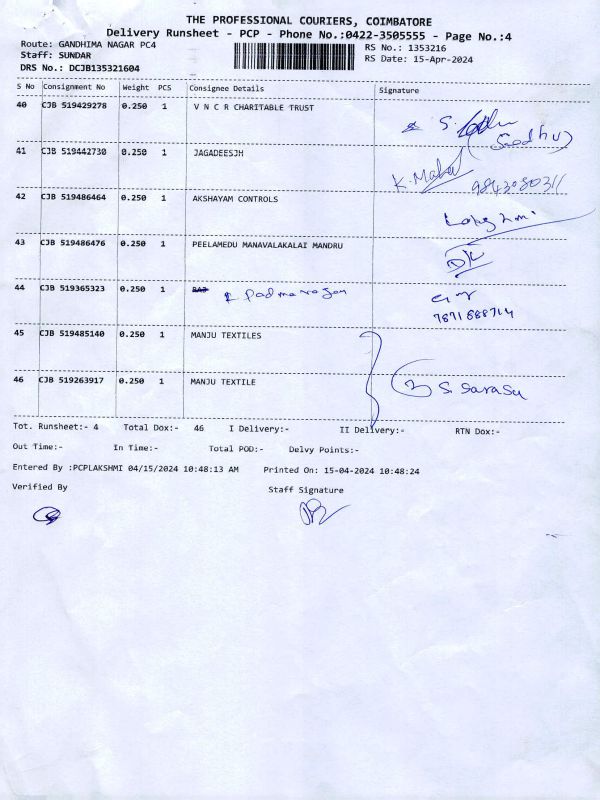 THE PROFESSIONAL COURIERS, COIMBATORE
Delivery Runsheet - PCP - Phone No.:0422-3505555 - Page No.:4
Route: GANDHIMA NAGAR PC4 RS No.: 1353216
Staff: SUNDAR RS Date: 15-Apr-2024
DRS No.: DCJB135321604
S No Consignment No Weight PCS Consignee Details Signature
40 CJB 519429278 0.250 1 V N C R CHARITABLE TRUST
41 CJB 519442730 0.250 1 JAGADEESJH
9843080311
42 CJB 519486464 0.250 1 AKSHAYAM CONTROLS
43 CJB 519486476 0.250 1 PEELAMEDU MANAVALAKALAI MANDRU
44 CJB 519365323 0.250 1
7871688714
45 CJB 519485140 0.250 1 MANJU TEXTILES
46 CJB 519263917 0.250 1 MANJU TEXTILE S. Sarasu
Tot. Runsheet:- 4 Total Dox:- 46 I Delivery:- II Delivery:- RTN Dox:-
Out Time:- In Time:- Total POD:- Delvy Points:-
Entered By :PCPLAKSHMI 04/15/2024 10:48:13 AM Printed On: 15-04-2024 10:48:24
Verified By Staff Signature